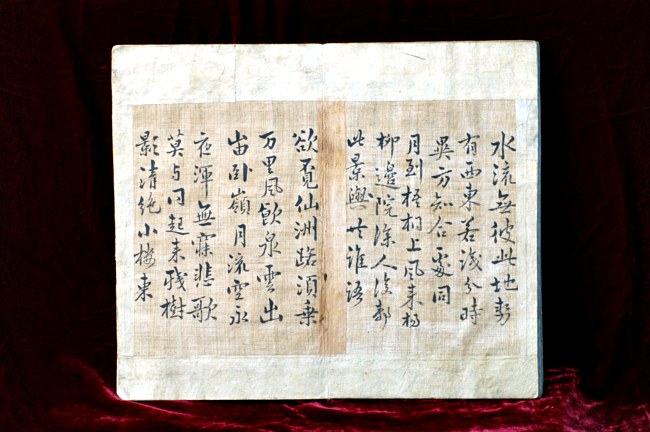 水流無彼此地勢
有西東若識分時
異方知合處同
月到梧桐上風来楊
柳邊院深人復靜
此景與共誰語
欲覓仙洲路須乗
万里風飲泉雲出
峀卧嶺月流空永
夜渾無寐悲歌
莫与同起来殘樹
影清絶小樓東